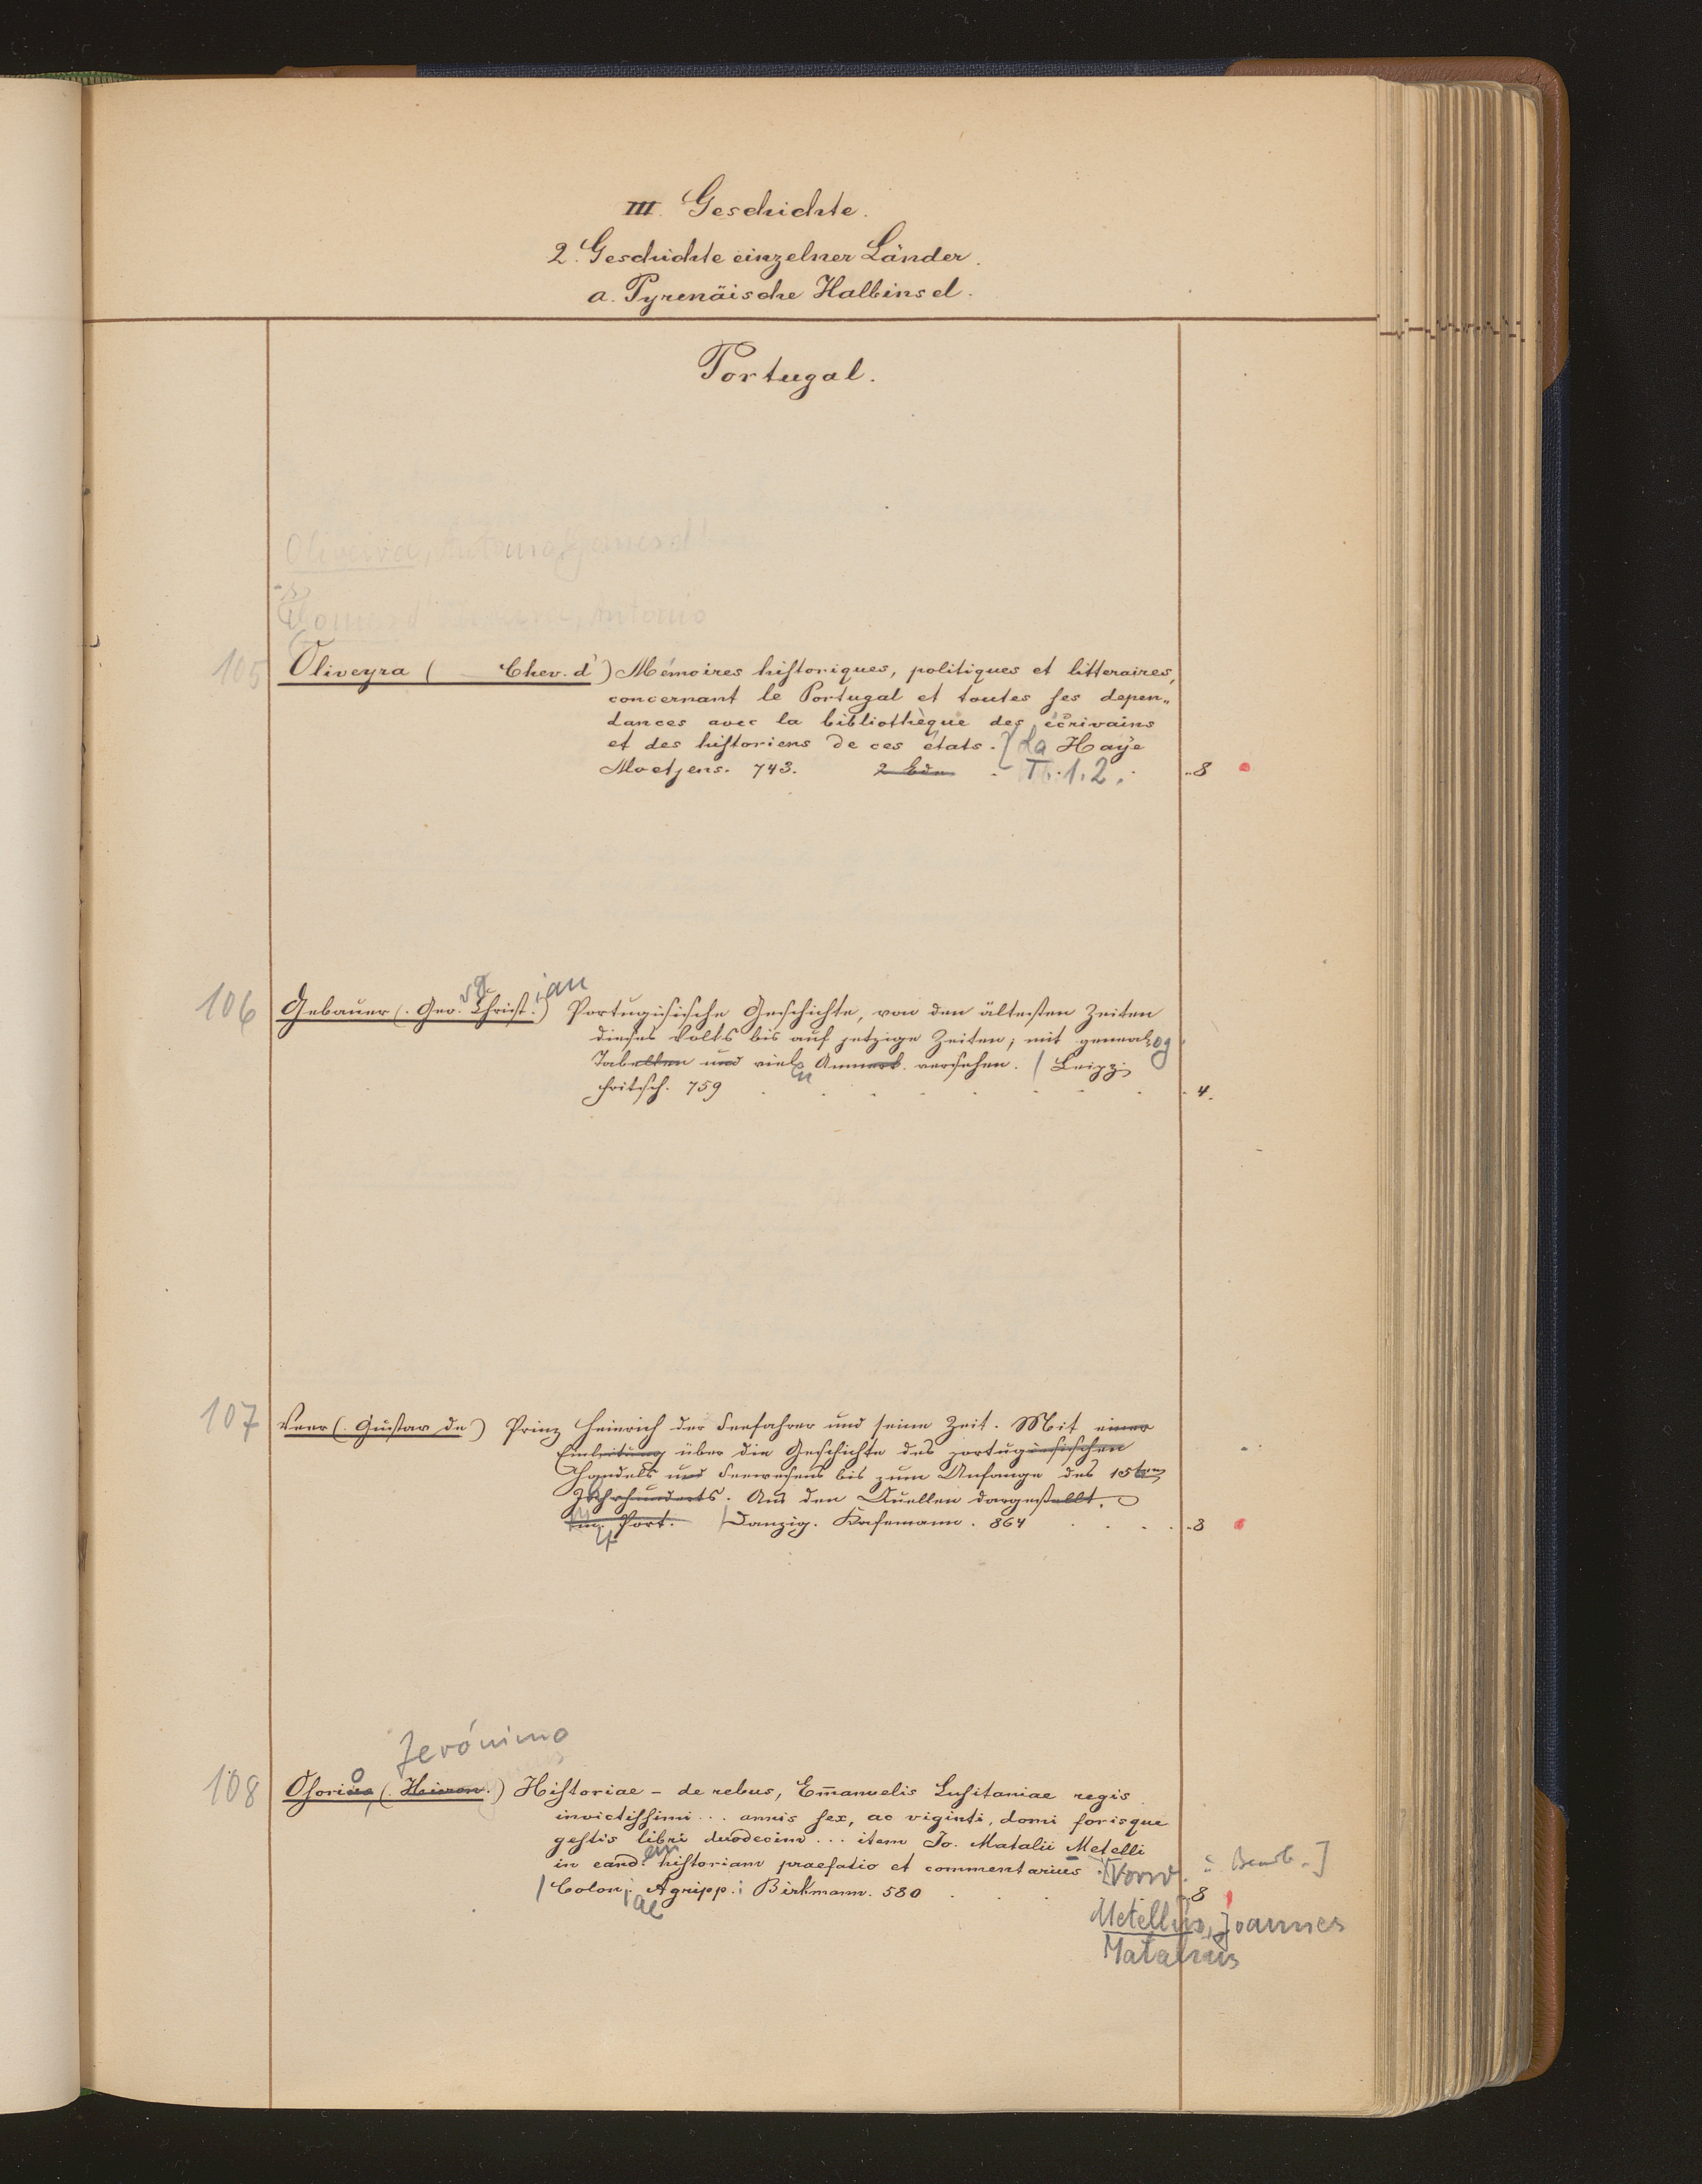 III. Geschichte.
2. Geschichte einzelner Länder.
a. Pyrenäische Halbinsel.
Portugal.
Oliveira, Antonio Gomes d'
Gomes d'Oliveira, Antonio
105 Oliveyra ( Chev. d') Mémoires historiques, politiques et litteraires,
concernant le Portugal et toutes ses depen„
dances avec la bibliothèque des écrivains
et des historiens de ces états. La Haye
Moetjens. 743. 2 Bde. T. 1. 2. 8
106 Gebauer (. Geo. rg Christ. ian) Portugisische Geschichte, von den ältesten Zeiten
dieses Volks bis auf jetzige Zeiten; mit genealog
Tabellen und viel en Anmerk. versehen. / Leipz.
Fritsch. 759 4.
107 Veer (. Gustav de) Prinz Heinrich der Seefahrer und seine Zeit. Mit einer
Einleitung über die Geschichte des portugiesischen
Handels und Seewesens bis zum Anfange des 15ten
Jahrhunderts. Aus den Quellen dargestellt.
Port. / Danzig. Kafemann. 864 8
Jerónimo
108 Osorius o (. Hieron.) Historiae - de rebus, Em̄anuelis Lusitaniae regis
invictissimi ... annis sex, ac viginti, domi forisque
gestis libri duodecim ... item Jo. Matalii Metelli
in eand. em historiam praefatio et commentarius. [Vorr. u. Bearb.]
/ Colon. iae Agripp.: Birkmann. 580 8
Metellus, Joannes
Matalius